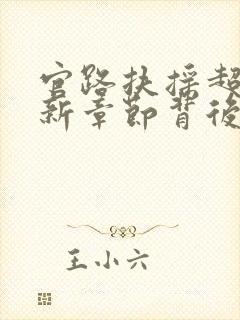 官路扶摇超
新章节背后
王小六